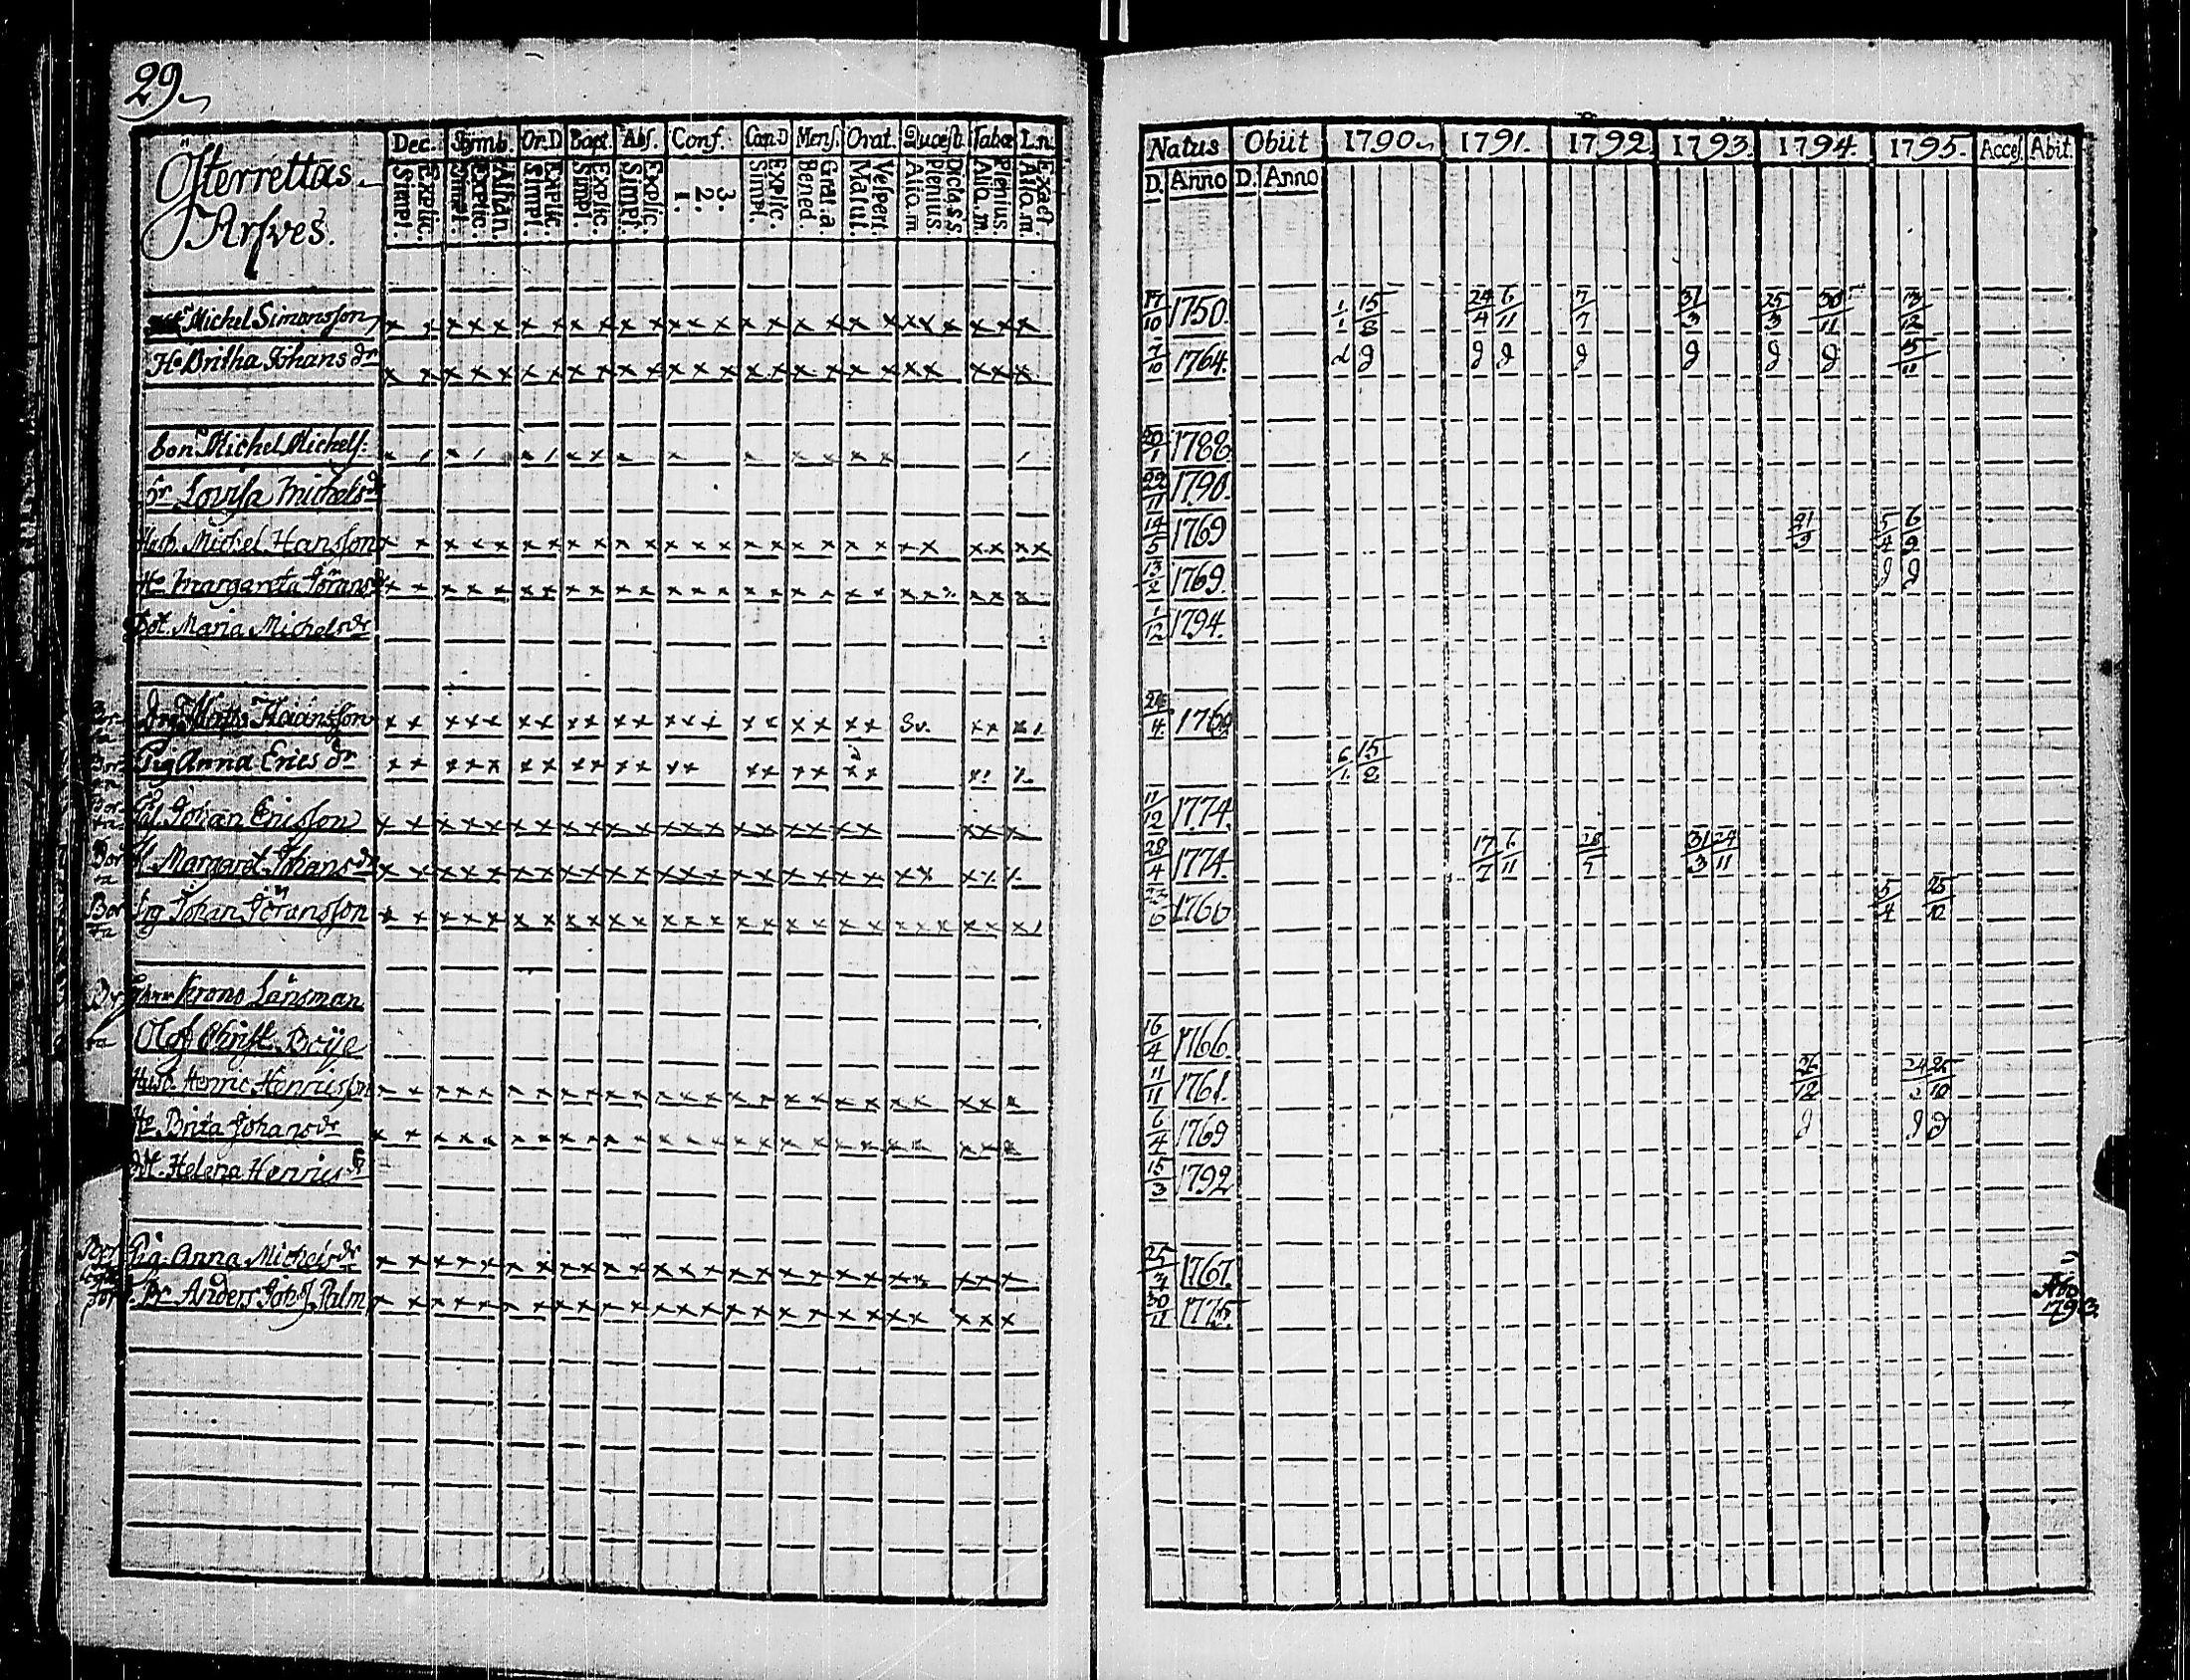 29
Österrettas
Arfves.
Dec. Symb. Or.D Bapt. Abs. Conf. Cœn.D Mens. Orat. Quœst. Tabœ L.n.
Simpl. Explic. Simpl. Explic. Athan. Simpl. Explic. Simpl. Explic. Simpl. Explic. 1. 2. 3. Simpl. Explic. Bened. Grat.a Matut. Vespert. Aliq.m Plenius Dicta.s.s Aliq.m Plenius Aliq.m Exact
Michel Simonsson
Hu Britha Johans dr
Son Michel Michels:
Dr Lovisa Michels dr
Husb. Michel Hansson
Hu Margareta Jörans dr
Dot. Maria Michels dr
Drg Hansson
Pig Anna Erics dr
Johan Ericsson
Bor ta H Margaret Johans dr
Bor ta Drg Johan Göransson
Krono Länsman
ta Olof Christ. Böije
Husb. Henric Henricsson
Hu Brita Johans dr
Dot. Helena Henrics dr
Pig. Anna Michels dr
Br Anders Joh. J. Palm
Natus Obiit 1790 1791. 1792 1793. 1794. 1795. Acces. Abit.
D. Anno D. Anno
17/10 1750. 1/1 15/8 24/4 6/11 7/7 31/3 25/3 30/11 13/12
7/10 1764. d d d d d d d 15/11
20/1 1788.
22/11 1790.
14/5 1769 21/9 5/4 6/9
13/2 1769. d d
1/12 1794.
6/1 15/2
11/12 1774.
28/4 1774. 17/7 6/11 28/7 31/3 24/11
1766 5/4 25/12
16/4 1766.
11/11 1761. 26/12 24/3 25/10
6/4 1769 d d d
15/3 1792
25/3 1767.
30/11 1775. Åbo 1793